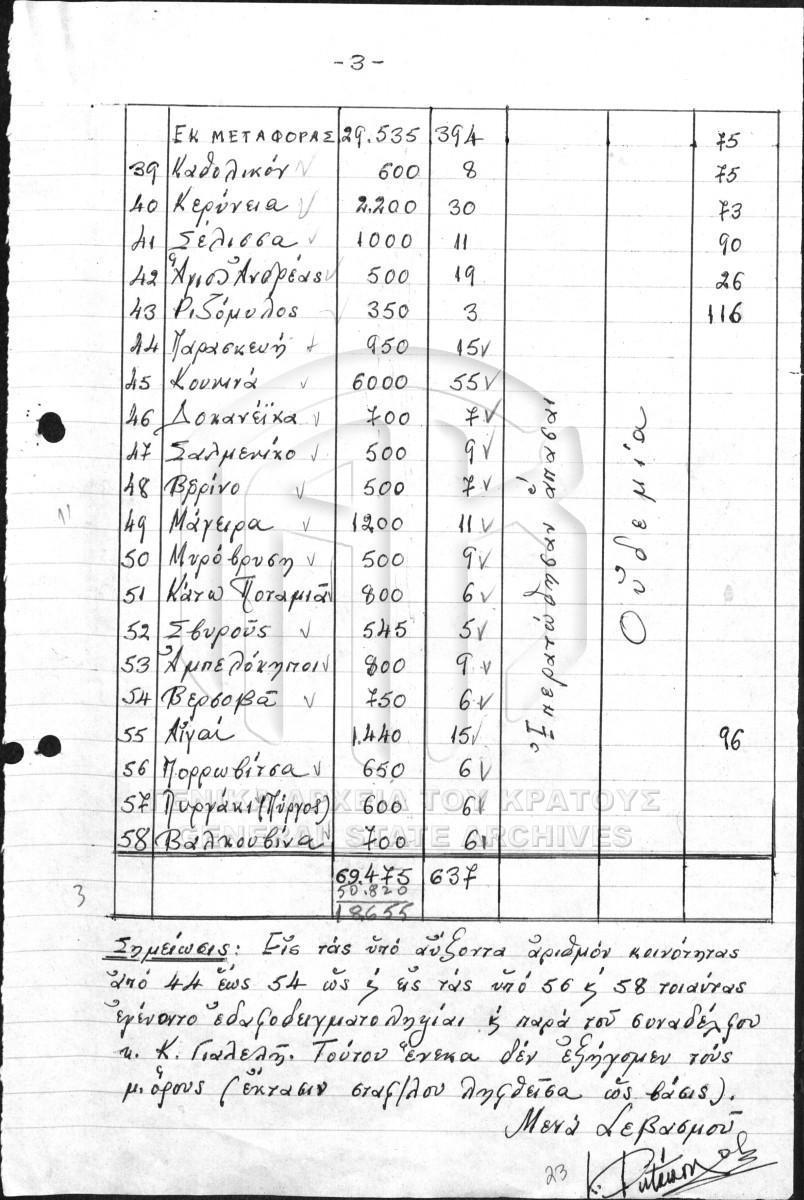 -3-
ΕΚ ΜΕΤΑΦΟΡΑΣ 29.535 394 75
39 Καθολικόν 600 8 75
40 Κερύνεια 2.200 30 73
41 Σέλισσα 1000 11 90
42 Ἅγιος Ἀνδρέας 500 19 26
43 Ριζόμυλος 350 3 116
44 Παρασκευή 950 15
45 Κουνινά 6000 55
46 Δοκανέϊκα 700 7
47 Σαλμενίκο 500 9
48 Βερίνο 500 7
49 Μάγειρα 1200 11
50 Μυρόβρυση 500 9
51 Κάτω Ποταμιά 800 6
52 Σβυροῦς 545 5
53 Ἀμπελόκηποι 800 9
54 Βερσοβᾶ 750 6
55 Αἰγαί 1.440 15 96
56 Πορρωβίτσα 650 6
57 Πυργάκι (Πύργος) 600 6
58 Βαλκουβίνα 700 6
Ἐπερατώθησαν ἅπασαι
Οὐδεμία
69.475 637
50.820
18655
3
Σημείωσις: Εἰς τάς ὑπό αὔξοντα ἀριθμόν κοινότητας
ἀπό 44 ἕως 54 ὡς κ εἰς τάς ὑπό 56 κ 58 τοιαύτας
ἐγένοντο ἐδαφοδειγματοληψίαι κ παρά τοῦ συναδέλφου
κ. Κ. Γιαλελῆ. Τούτου ἕνεκα δέν ἐξήγομεν τούς
μ. ὅρους (ἔκτασιν σταφ/λου ληφθεῖσα ὡς βάσις).
Μετά Σεβασμοῦ
23
ΓΕΝΙΚΑ ΑΡΧΕΙΑ ΤΟΥ ΚΡΑΤΟΥΣ
GENERAL STATE ARCHIVES